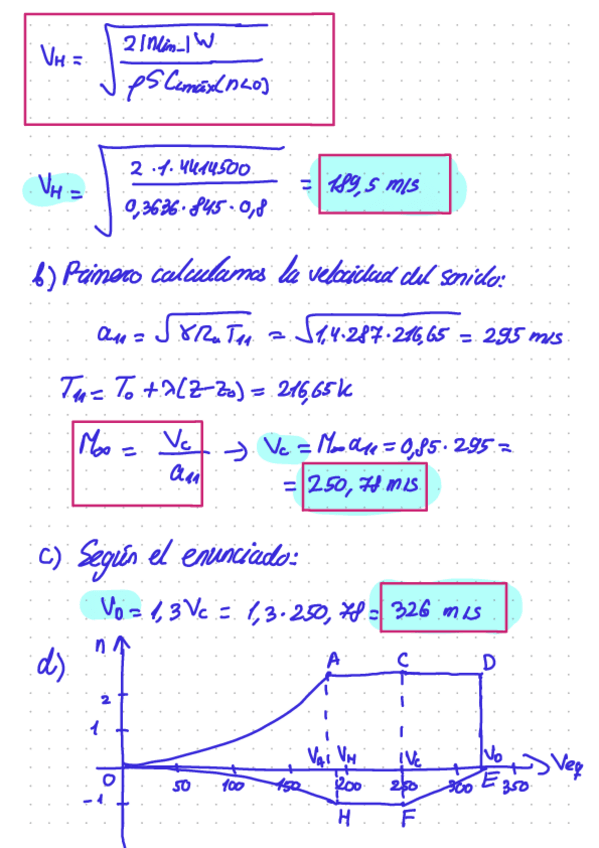 V_H = √(2|n_lim-|W / ρSC_Lmáx(n<0))
V_H = √(2·1·4414500 / 0,3636·845·0,8) = 189,5 m/s
b) Primero calculamos la velocidad del sonido:
a₁₁ = √(γR_aT₁₁) = √(1,4·287·216,65) = 295 m/s
T₁₁ = T₀ + λ(z-z₀) = 216,65k
M∞ = V_c / a₁₁ → V_c = M∞a₁₁ = 0,85·295 =
= 250,78 m/s
c) Según el enunciado:
V_D = 1,3V_c = 1,3·250,78 = 326 m/s
d) n
A C D
2
1
V_A V_H V_c V_D
0 50 100 150 200 250 300 E 350 Veq
-1
H F